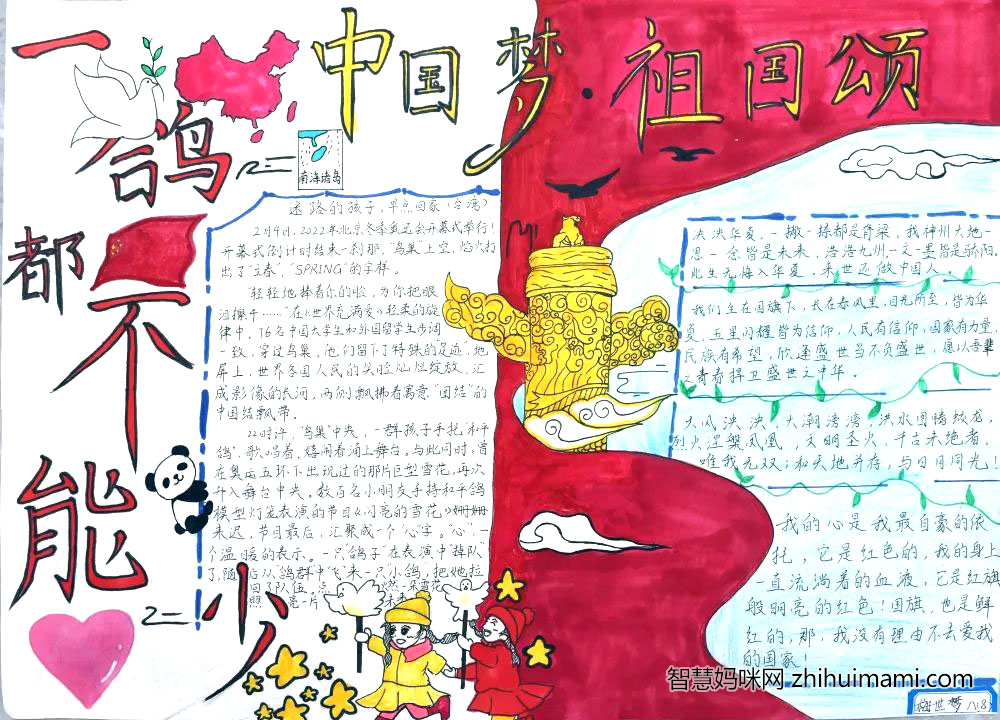 中国梦·祖国颂
一
鸽
都
不
能
少
南海诸岛
迷路的孩子,早点回家(台湾)
2月4日,2022年北京冬季奥运会开幕式举行!
开幕式倒计时结束一刹那,“鸟巢”上空,焰火打
出了“立春”、“SPRING”的字样。
“轻轻地捧着你的脸,为你把眼
泪擦干……”在《世界充满爱》轻柔的旋
律中,76名中国大学生和外国留学生步调
一致,穿过鸟巢,他们留下了特殊的足迹,地
屏上,世界各国人民的笑脸灿烂绽放,汇
成影像的长河,两侧飘拂着寓意“团结”的
中国结飘带。
22时许,“鸟巢”中央,一群孩子手托“和平
鸽”,歌唱着,嬉闹着涌上舞台,与此同时,曾
在奥运五环下出现过的那片巨型雪花,再次
升入舞台中央,数百名小朋友手持和平鸽
模型灯笼表演的节目《闪亮的雪花》姗姗
来迟,节目最后,汇聚成一个“心”字。“心”,一
个温暖的表示。一只“鸽子”在表演中掉队
了,随后从“鸽群中”飞来一只小鸽,把她拉
回了队伍。点
泱泱华夏,一撇一捺都是脊梁,我神州大地一
思一念皆是未来,浩浩九州,一文一墨皆是骄阳。
此生无悔入华夏,来世还做中国人。
我们生在国旗下,长在春风里,目光所至,皆为华
夏,五星闪耀皆为信仰,人民有信仰,国家有力量,
民族有希望,欣逢盛世当不负盛世,愿以吾辈
之青春捍卫盛世之中华。
大风泱泱,大潮滂滂,洪水图腾蛟龙,
烈火涅槃凤凰,文明圣火,千古未绝者,
唯我无双;和天地并存,与日月同光!
我的心是我最自豪的依
托,它是红色的,我的身上
一直流淌着的血液,它是红旗
般明亮的红色!国旗,也是鲜
红的,那,我没有理由不去爱我
的国家!
智慧妈咪网 zhihuimami.com